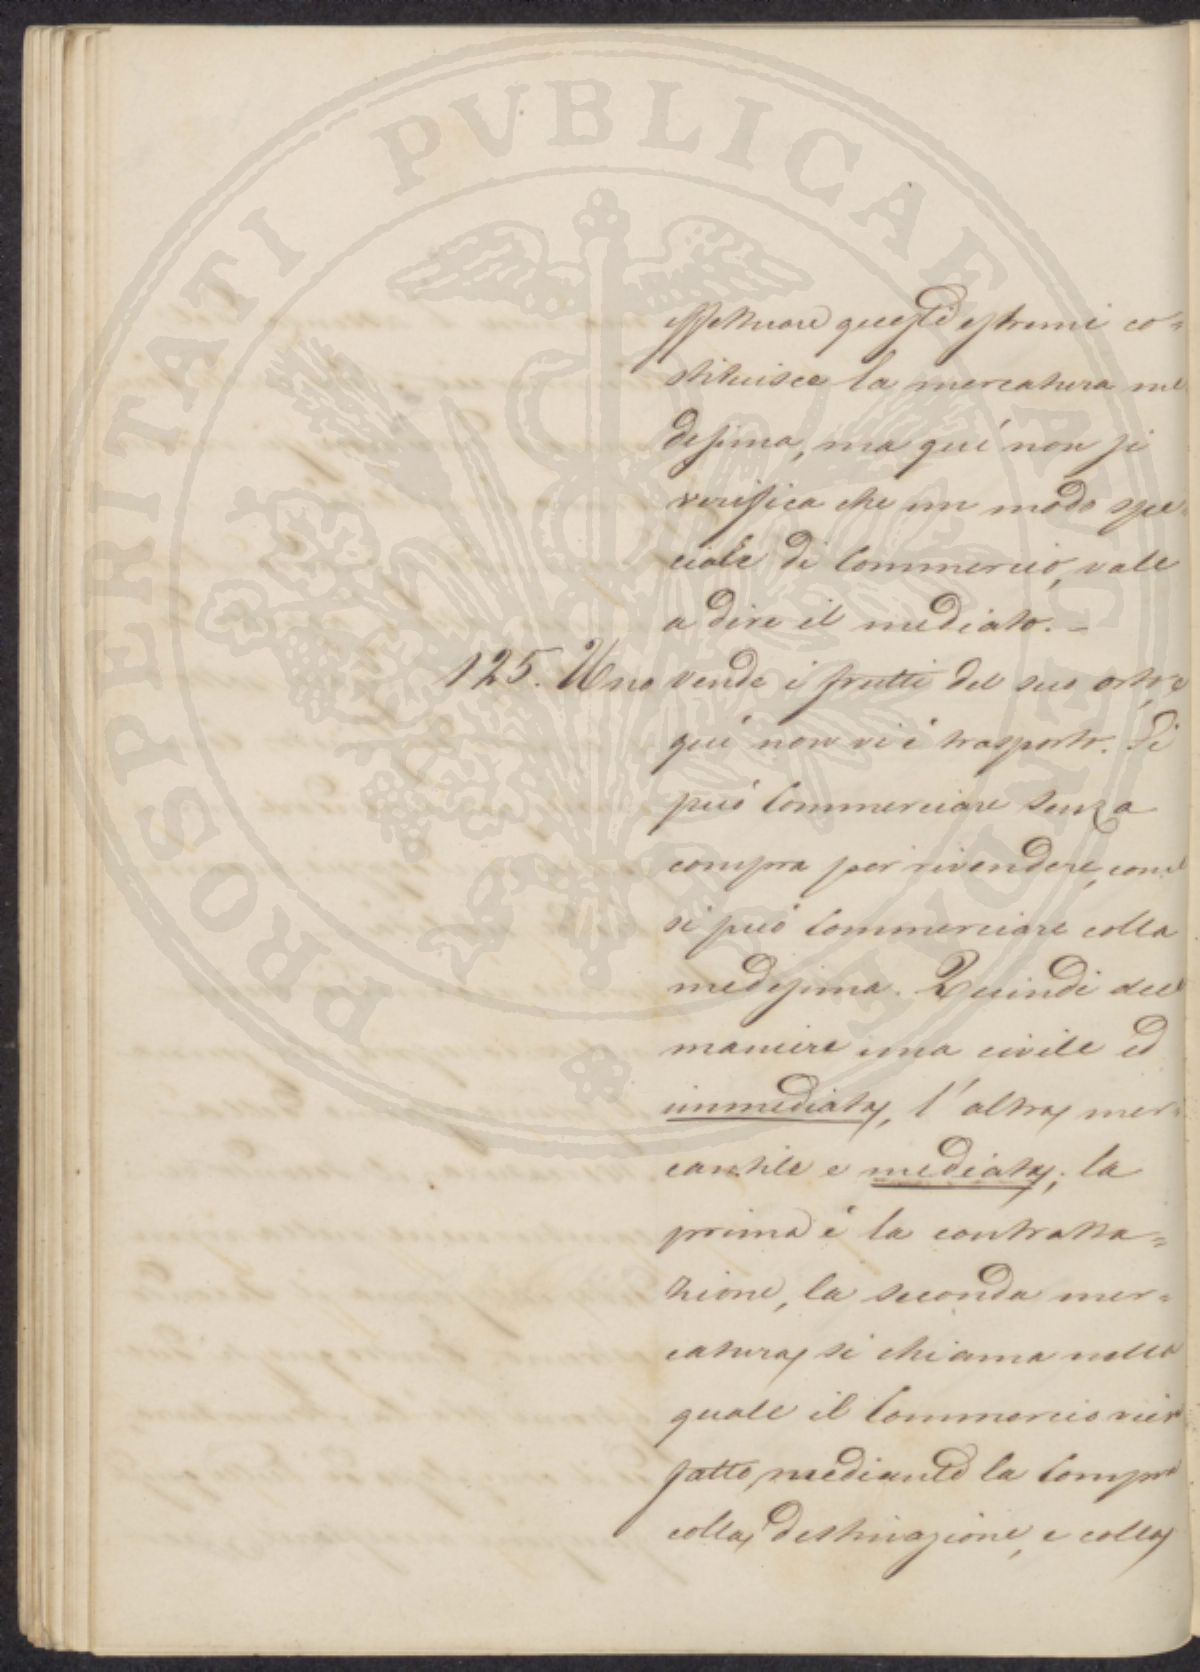 PROSPERITATI PVBLICAE AVGENDAE
effettuare questi estremi co=
stituisce la mercatura me
desima, ma quí non si
verifica che un modo spe=
ciale di Commercio, vale
a dire il mediato. –
125. Uno vende i frutti del suo orto,
quí non vi é trasporto. Si
puó Commerciare senza
compra per rivendere, come
si puó Commerciare colla
medesima. Quindi due
maniere una civile ed
immediata, l'altra mer=
cantile e mediata; la
prima é la contratta=
zione, la seconda mer=
catura, si chiama nella
quale il Commercio vien
fatto, mediante la Compra
colla destinazione, e colla